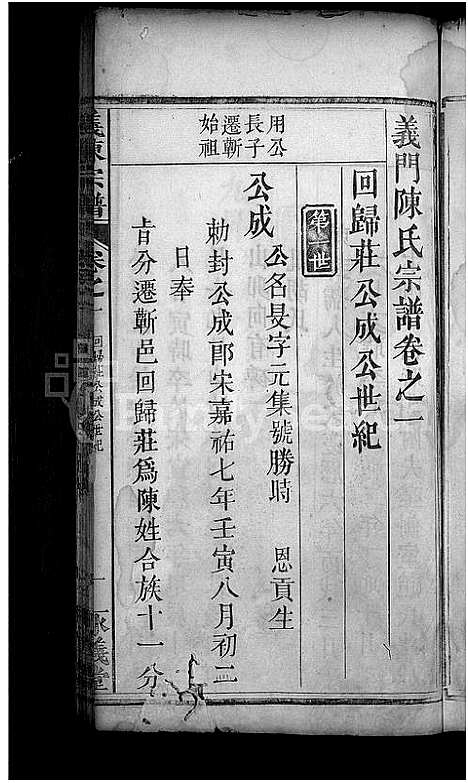 義門陳氏宗譜卷之一
回歸莊公成公世紀
第一世
用公
長子
遷蘄
始祖
公成 公名旻字元集號勝時 恩貢生
勅封公成郎宋嘉祐七年壬寅八月初二
日奉
旨分遷蘄邑回歸莊爲陳姓合族十一分
義陳宗譜
卷之一
回歸莊公成公世紀
一
承義堂